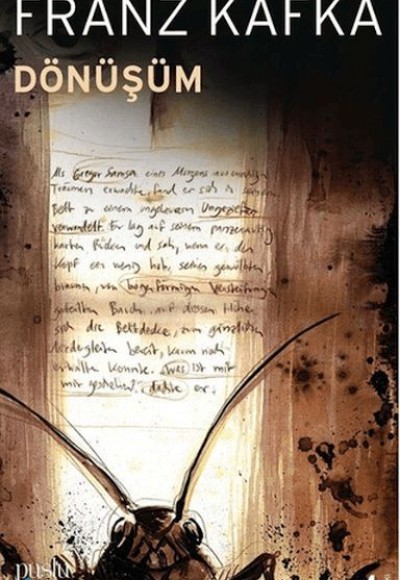 FRANZ KAFKA
DÖNÜŞÜM
Als Gregor Samsa eines Morgens aus
Träumen erwachte, fand er sich in seinem
Bett zu einem ungeheueren Ungeziefer
verwandelt. Er lag auf seinem
harten Rücken und sah, wenn er den
Kopf ein wenig hob, seinen gewölbten
braunen, von bogenförmigen Versteifungen
geteilten Bauch, auf dessen Höhe
sich die Bettdecke, zum gänzlichen
Niedergleiten bereit, kaum noch
erhalten konnte. Was ist mit
mir geschehen? dachte er.
puslu